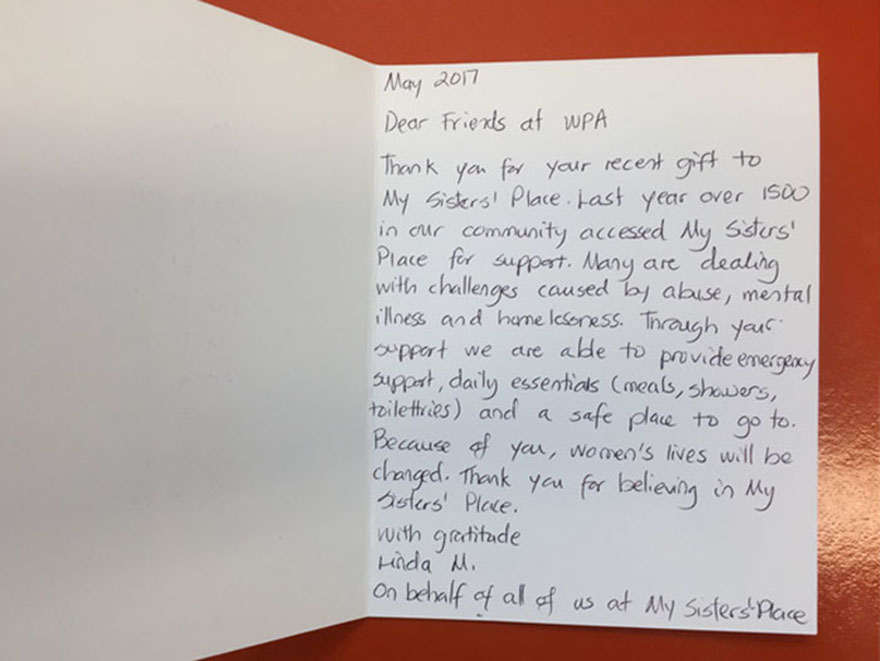 May 2017
Dear Friends at WPA
Thank you for your recent gift to
My Sisters' Place. Last year over 1500
in our community accessed My Sisters'
Place for support. Many are dealing
with challenges caused by abuse, mental
illness and homelessness. Through your
support we are able to provide emergency
support, daily essentials (meals, showers,
toilettries) and a safe place to go to.
Because of you, women's lives will be
changed. Thank you for believing in My
Sisters' Place.
With gratitude
Linda M.
On behalf of all of us at My Sisters' Place